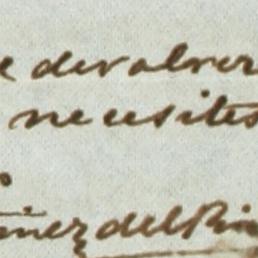 e devolver
necesites
inez del Rin